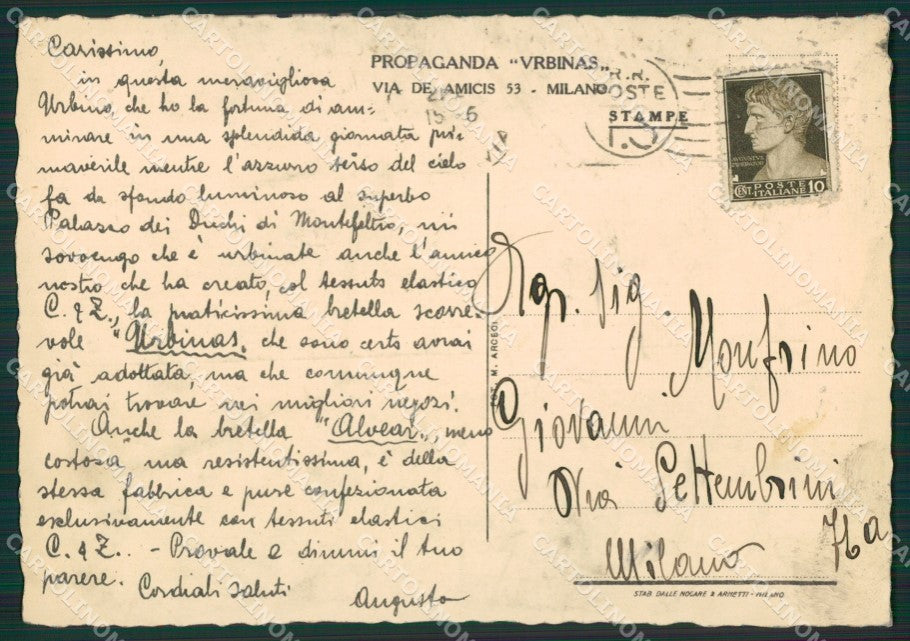 Carissimo,
in questa meravigliosa
Urbino, che ho la fortuna di am=
mirare in una splendida giornata pri=
maverile mentre l'azzurro terso del cielo
fa da sfondo luminoso al superbo
Palazzo dei Duchi di Montefeltro, mi
sovvengo che è urbinate anche l'amico
nostro che ha creato, col tessuto elastico
C. & Z., la praticissima bretella scorre-
vole "Urbinas„ che sono certo avrai
già adottata, ma che comunque
potrai trovare nei migliori negozi.
Anche la bretella "Alvear„, meno
costosa, ma resistentissima, è della
stessa fabbrica e pure confezionata
esclusivamente con tessuti elastici
C. & Z.. - Provale e dimmi il tuo
parere.
Cordiali saluti
Augusto
PROPAGANDA "VRBINAS„
VIA DE AMICIS 53 - MILANO
R.R.
POSTE
STAMPE
AVGVSTVS
POSTE
CENT. ITALIANE 10
M. ARCEOL
Sig.
Monfrino
Giovanni
Via Settembrini
76a
Milano
STAB. DALLE NOGARE & ARMETTI - MILANO
CARTOLINOMANIA